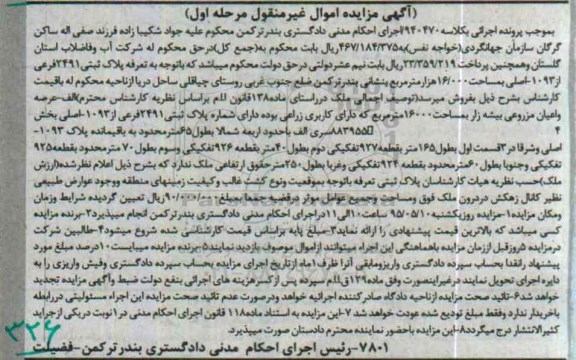 (آگهی مزایده اموال غیرمنقول مرحله اول)
بموجب پرونده اجرائی بکلاسه ۹۴۰۴۷۰/اجرای احکام مدنی دادگستری بندرترکمن محکوم علیه جواد شکیبا زاده فرزند صفی اله ساکن
گرگان سازمان جهانگردی(خواجه نفس)به۴۶۷/۱۸۴/۳۷۵ریال بابت محکوم به(جمع کل)درحق محکوم له شرکت آب وفاضلاب استان
گلستان وهمچنین پرداخت ۲۳/۳۵۹/۲۱۹ریال بابت نیم عشردولتی درحق دولت محکوم میباشد که باتوجه به تعرفه پلاک ثبتی ۲۴۹۱فرعی
از۱۰۹۳-اصلی بمساحت ۱۶۰۰۰هزارمترمربع بنشانی بندرترکمن ضلع جنوب غربی روستای چپاقلی ساحل دریا ازناحیه محکوم له باقیمت
کارشناس بشرح ذیل بفروش میرسد(توصیف اجمالی ملک درراستای ماده۱۳۸قانون ا.ا.م براساس نظریه کارشناس محترم)الف-عرصه
واعیان مزروعی بیشه زار بمساحت۱۶۰۰۰مترمربع که دارای کاربری زراعی بوده دارای شماره پلاک ثبتی ۲۴۹۱فرعی از۱۰۹۳-اصلی بخش
۴ ۸۸۳۹۵۵سری الف باحدود اربعه شمالا بطول۶۵متر محدود به باقیمانده پلاک ۱۰۹۳-
اصلی وشرقا در۳قسمت اول بطول۱۶۵متر بقطعه۹۲۷تفکیکی دوم بطول۴۰متر بقطعه ۹۲۶تفکیکی وسوم بطول ۷۰مترمحدود بقطعه۹۲۵
تفکیکی وجنوبا بطول ۶۰مترمحدود بقطعه ۹۲۴تفکیکی وغربا بطول ۲۵۰مترحقوق ارتفاعی ملک ندارد که بشرح ذیل اعلام نظرشده(ارزش
ملک)حسب نظریه هیات کارشناسان پلاک ثبتی تعرفه باتوجه بموقعیت ونوع کشت غالب وکیفیت زمینهای منطقه ووجود عوارض طبیعی
نظیر کانال زهکش دردرون ملک فوق ومساحت وجمیع عوامل موثر درقضیه جمعا بمبلغ ریال تعیین گردیده شرایط وزمان
ومکان مزایده۱-مزایده روزیکشنبه ۹۵/۰۵/۱۰ ساعت ۱۰الی۱۱دراجرای احکام مدنی دادگستری بندرترکمن انجام میپذیرد۲-برنده مزایده
کسی میباشد که بالاترین قیمت پیشنهادی را ارائه نماید۳-مبلغ پایه براساس قیمت کارشناسی شده شروع میشود۴-طالبین شرکت
درمزایده ۵روزقبل اززمان مزایده باهماهنگی این اجراء میتوانند ازاموال موصوف بازدید نمایند۵-برنده مزایده میبایست ۱۰درصد مبلغ مورد
پیشنهاد رانقدا بحساب سپرده دادگستری واریزومابقی آنرا ظرف ۱ماه ازتاریخ اجرای مزایده بحساب سپرده دادگستری وفیش واریزی را به
دایره اجرای تحویل نمایند درغیراینصورت وفق ماده۱۲۹ق.ا.ا.م سپرده پس ازکسرهزینه های اجرائی بنفع دولت ضبط وآگهی مزایده تجدید
خواهد شد۶-تائید صحت مزایده ازناحیه دادگاه صادر کننده اجرائیه خواهد ودرصورت عدم تائید صحت مزایده این اجراء مسئولیتی دررابطه
باخریدار ندارد وفقط مبلغ تودیع شده عودت خواهد شد ۷-این مزایده به استناد ماده۱۱۸ قانون اجرای احکام مدنی در۱نوبت دریکی ازجراید
کثیرالانتشار درج میگردد۸-این مزایده باحضور نماینده محترم دادستان صورت میپذیرد.
۷۸۰۱-رئیس اجرای احکام مدنی دادگستری بندرترکمن-فضیلت
۳۲۶